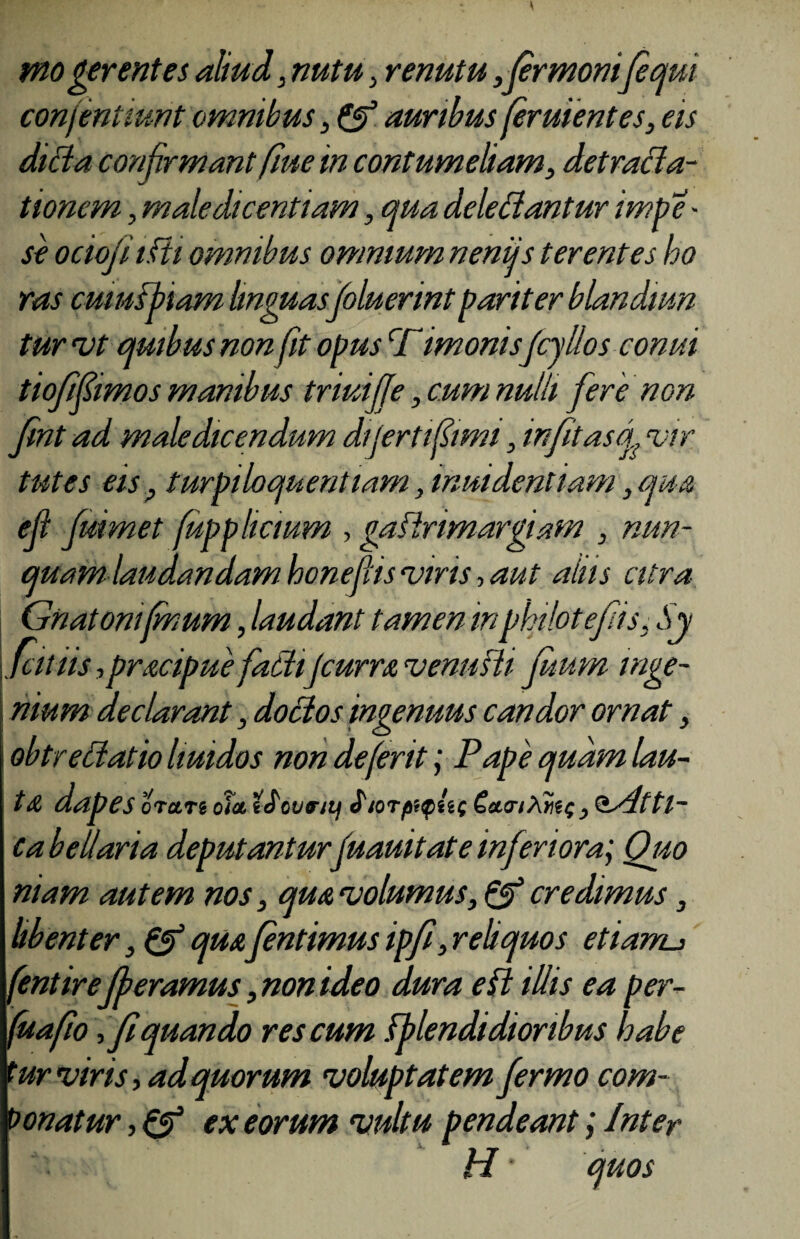 mo gerentes aliud, nutu, renutu, ſermoni ſequi
conſentiunt omnibus, & auribus ſeruientes, eis
dicta confirmant ſiue in contumeliam, detracta-
tionem, maledicentiam, qua delectantur impe-
sè ocioſi iſti omnibus omnium nenijs terentes ho
ras cuiuſpiam linguas ſoluerint pariter blandiun
tur vt quibus non ſit opus Timonis ſcyllos conui
tioſiſſimos manibus triuiſſe, cum nulli fere non
ſint ad maledicendum diſertiſſimi, inſitasq́ vir
tutes eis, turpiloquentiam, inuidentiam, qua
eſt ſuimet ſupplicium, gaſtrimargiam, nun-
quam laudandam honeſtis viris, aut aliis citra
Gnatoniſmum, laudant tamen in philoteſiis, Sy
ſcitiis, præcipuè facti ſcurræ venuſti ſuum inge-
nium declarant, doctos ingenuus candor ornat,
obtrectatio liuidos non deſerit; Papè quàm lau-
tæ dapes ὅταν τε οἷα ἔδουσιν διοτρεφέες βασιλῆες, Atti-
ca bellaria deputantur ſuauitate inferiora; Quo
niam autem nos, quæ volumus, & credimus,
libenter, & quæ ſentimus ipſi, reliquos etiam
ſentire ſperamus, non ideo dura eſt illis ea per-
ſuaſio, ſi quando res cum ſplendidioribus habe
tur viris, ad quorum voluptatem ſermo com-
ponatur, & ex eorum vultu pendeant; Inter
H quos